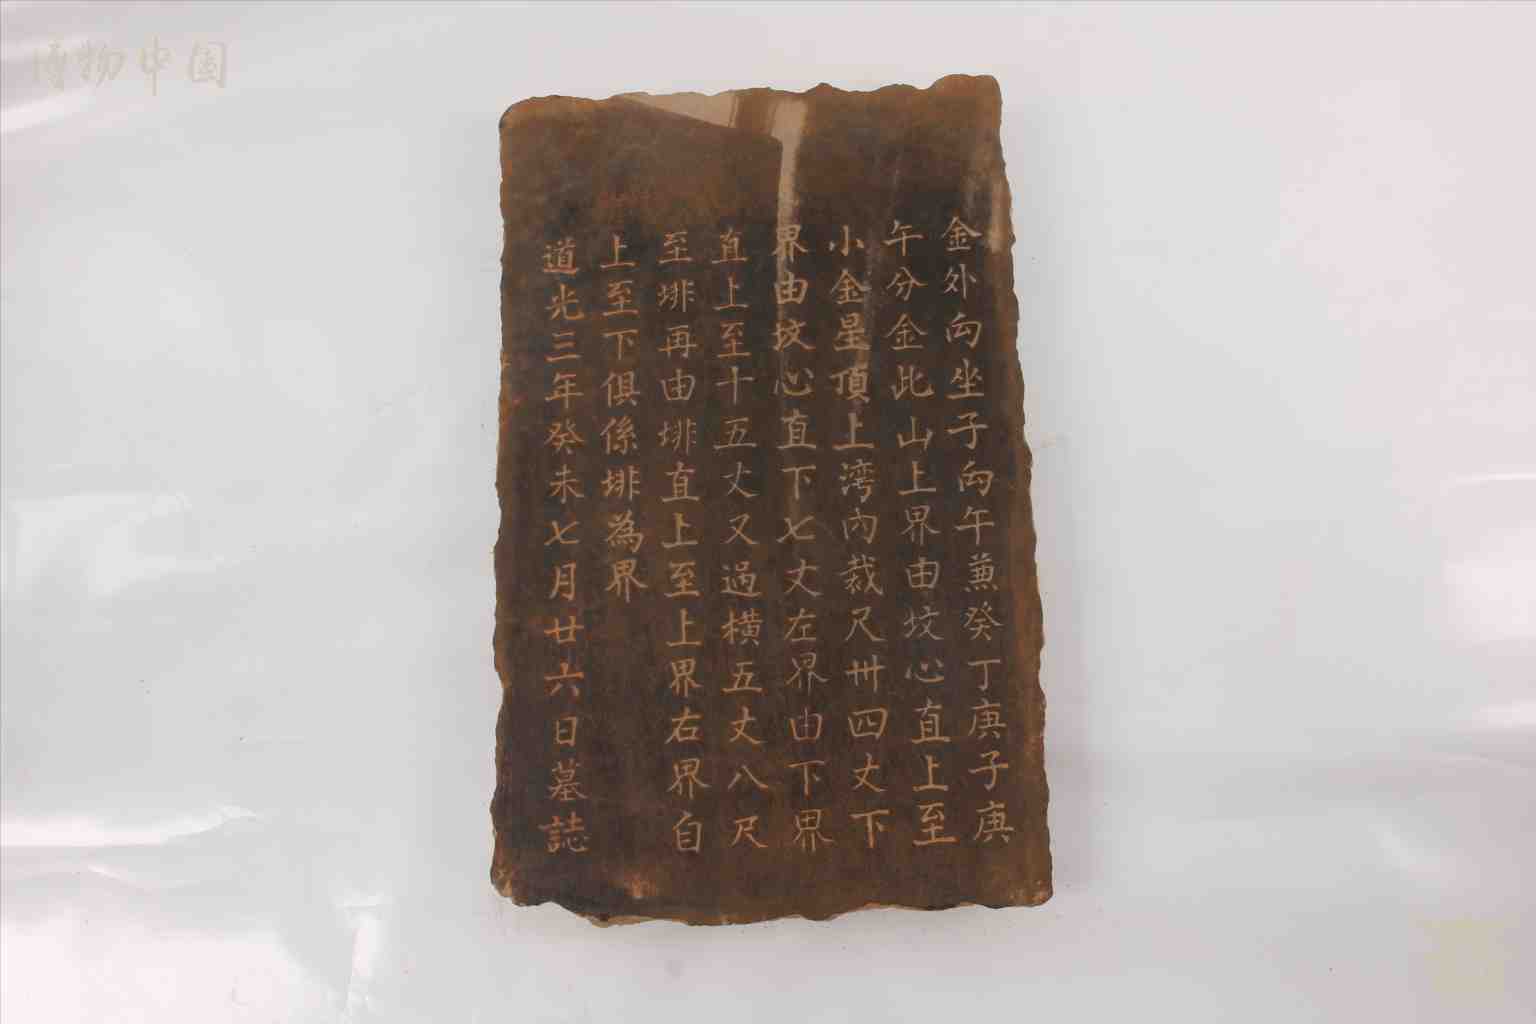 博物中国
金外向坐子向午兼癸丁庚子庚
午分金此山上界由坟心直上至
小金星頂上湾內裁尺卅四丈下
界由坟心直下七丈左界由下界
直上至十五丈又過橫五丈八尺
至埪再由埪直上至上界右界自
上至下俱係埪為界
道光三年癸未七月廿六日墓誌